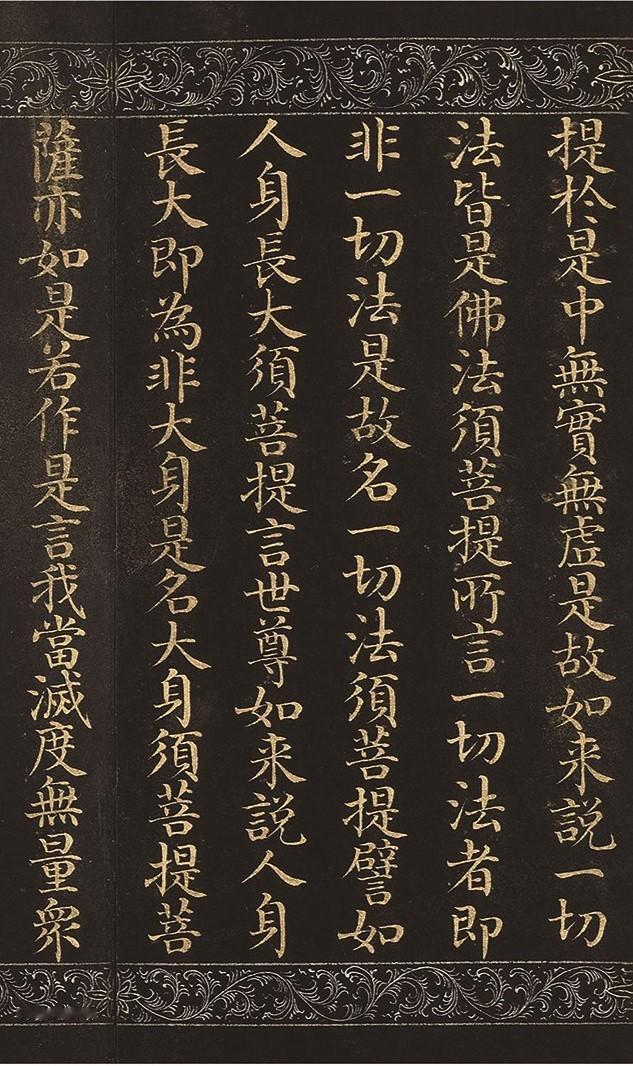 提於是中無實無虛是故如来說一切
法皆是佛法須菩提所言一切法者即
非一切法是故名一切法須菩提譬如
人身長大須菩提言世尊如来說人身
長大即為非大身是名大身須菩提菩
薩亦如是若作是言我當滅度無量眾